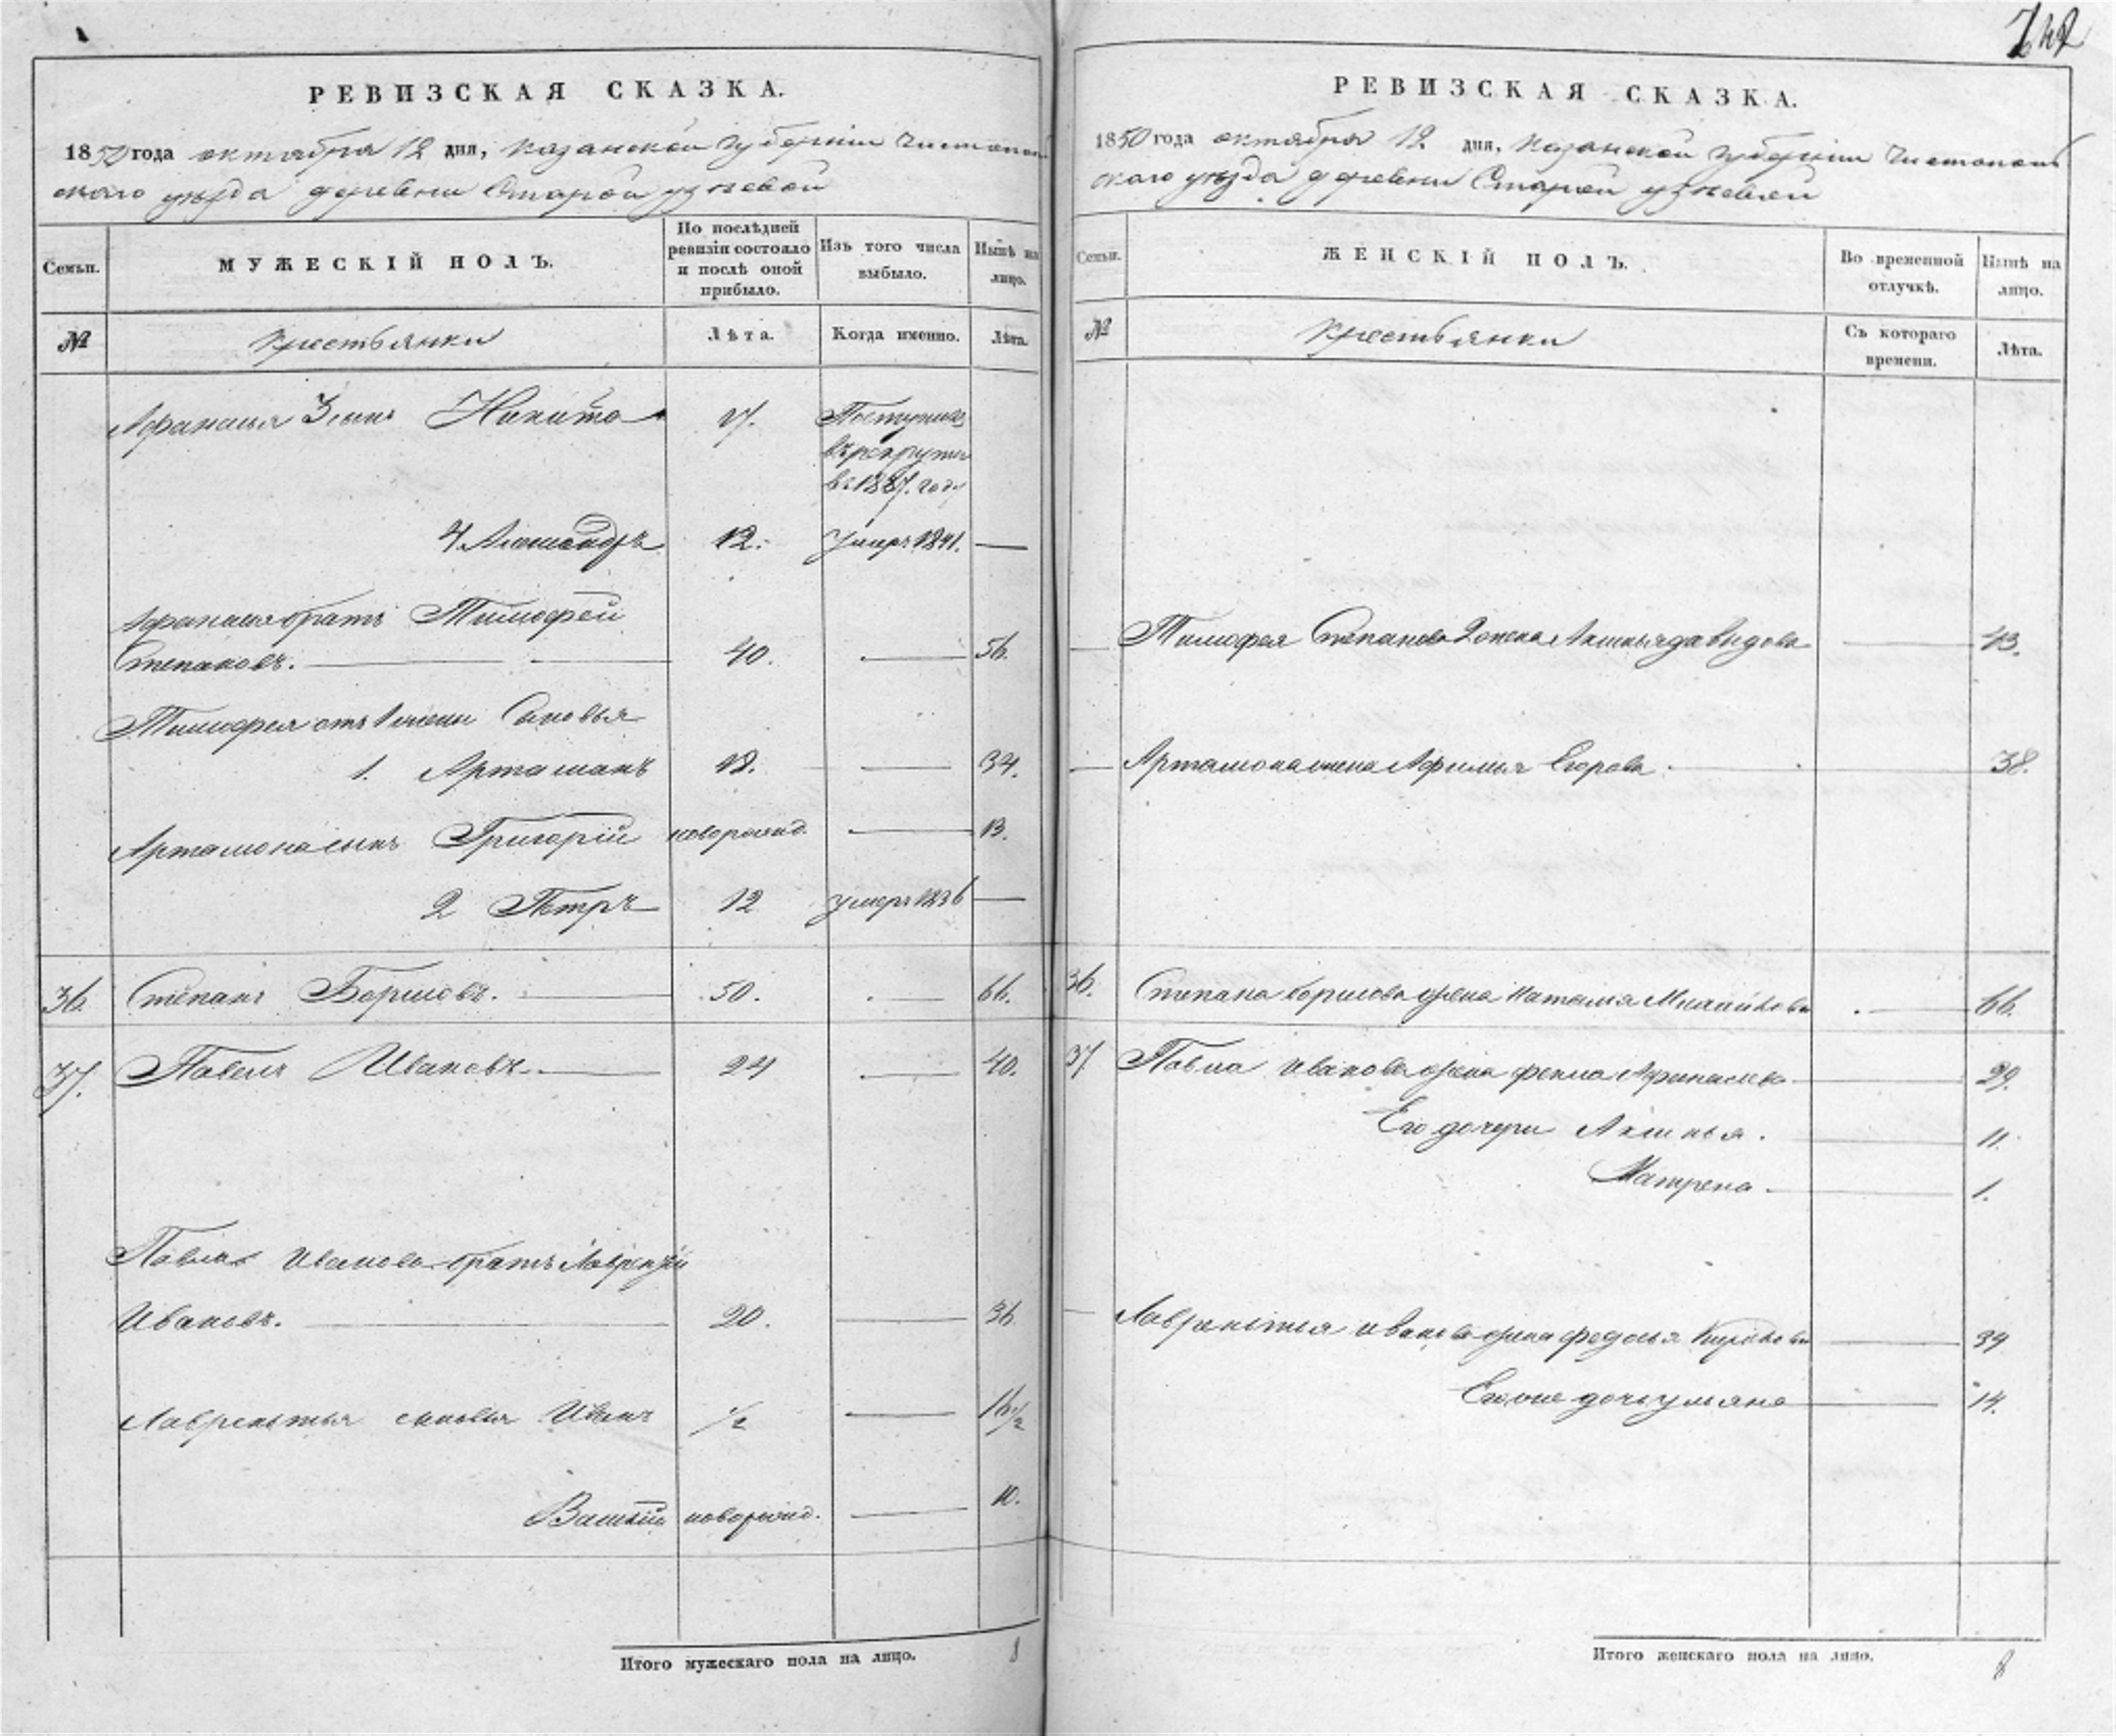 742
РЕВИЗСКАЯ СКАЗКА.
1850 года октября 12 дня, Казанской губернии Чистополь
скаго уѣзда деревни Старой
Семьи.
МУЖЕСКІЙ ПОЛЪ.
По послѣдней ревизіи состояло и послѣ оной прибыло.
Изъ того числа выбыло.
Нынѣ на лицо.
№
Крестьянки
Лѣта.
Когда именно.
Лѣта.
Афанасья 3 сынъ Никита 17. Поступилъ
въ рекруты
году
4 Александръ 12. умеръ 1841. —
Афанасья братъ Тимофей
Степановъ. — 40. — 56.
Тимофея отъ 1 жены Сыновья
1. Артамонъ 18. — 34.
Артамона сынъ Григорій новорожд. — 13.
2 Петръ 12 умеръ 1836 —
36. Степанъ Борисовъ. — 50. — 66.
37. Павелъ Ивановъ — 24 — 40.
Павла Иванова братъ Лаврентій
Ивановъ. — 20. — 36
Лаврентья сыновья Иванъ 1/2 — 16 1/2
Василій новорожд. — 10.
Итого мужескаго пола на лицо. 8
РЕВИЗСКАЯ СКАЗКА.
1850 года октября 12 дня, Казанской губерніи Чистополь
скаго уѣзда деревни Старой
Семьи.
ЖЕНСКІЙ ПОЛЪ.
Во временной отлучкѣ.
Нынѣ на лицо.
№
Крестьянки
Съ котораго времени.
Лѣта.
— Тимофея Степанова 2 жена Аксинья Давыдова — 43.
— Артамона жена Афимья Егорова — 38.
36. Степана Борисова жена Наталья — 66.
37 Павла Иванова жена Фекла Афанасьева — 29.
Его дочери Аксинья. — 11.
Матрена. — 1.
— Лаврентья Иванова жена Федосья — 34
Его же дочь Ульяна — 14.
Итого женскаго пола на лицо. 8